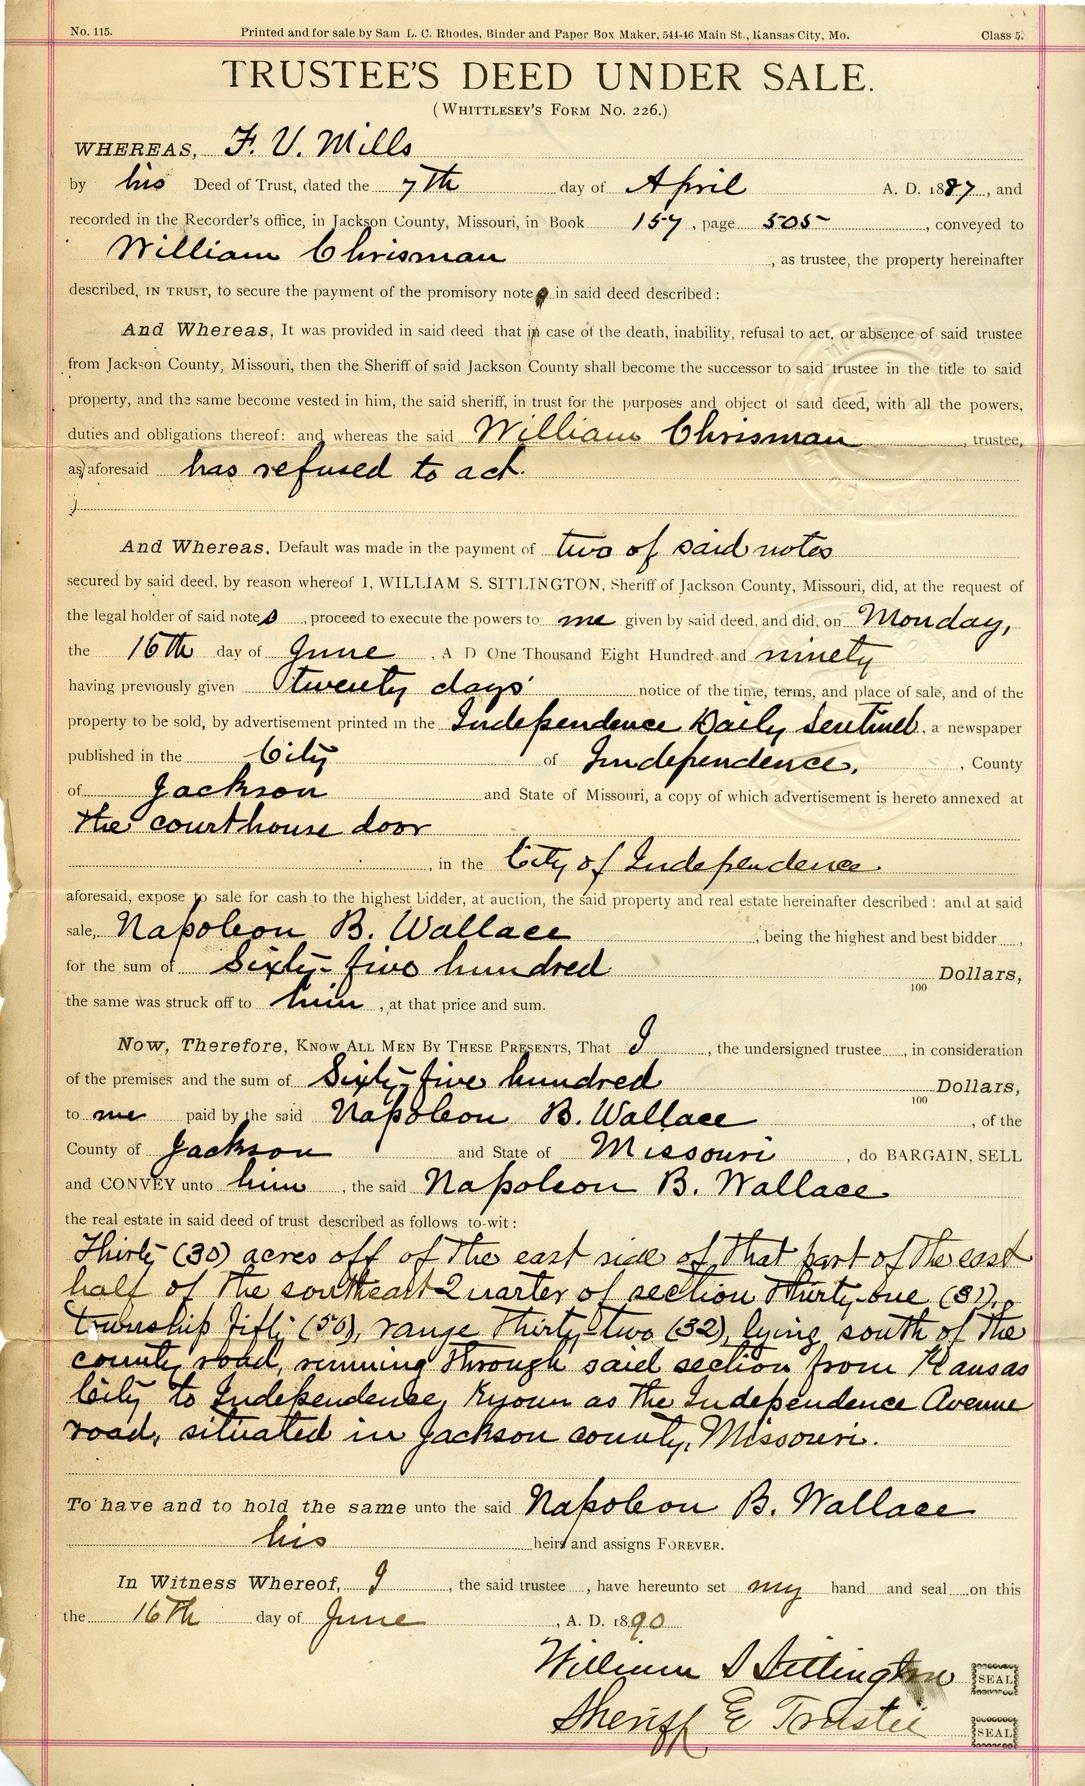 No. 115. Printed and for sale by Sam L. C. Rhodes, Binder and Paper Box Maker, 544-46 Main St., Kansas City, Mo. Class 5.
TRUSTEE'S DEED UNDER SALE.
(WHITTLESEY'S FORM NO. 226.)
WHEREAS, F. V. Mills
by his Deed of Trust, dated the 7th day of April A. D. 1887, and
recorded in the Recorder's office, in Jackson County, Missouri, in Book 157, page 505, conveyed to
William Chrisman, as trustee, the property hereinafter
described, IN TRUST, to secure the payment of the promisory note in said deed described:
And Whereas, It was provided in said deed that in case of the death, inability, refusal to act, or absence of said trustee
from Jackson County, Missouri, then the Sheriff of said Jackson County shall become the successor to said trustee in the title to said
property, and the same become vested in him, the said sheriff, in trust for the purposes and object of said deed, with all the powers,
duties and obligations thereof: and whereas the said William Chrisman, trustee,
as aforesaid has refused to act.
And Whereas, Default was made in the payment of two of said notes
secured by said deed, by reason whereof I, WILLIAM S. SITLINGTON, Sheriff of Jackson County, Missouri, did, at the request of
the legal holder of said notes, proceed to execute the powers to me given by said deed, and did, on Monday,
the 16th day of June, A D One Thousand Eight Hundred and ninety
having previously given twenty days' notice of the time, terms, and place of sale, and of the
property to be sold, by advertisement printed in the Independence Daily Sentinel, a newspaper
published in the City of Independence, County
of Jackson and State of Missouri, a copy of which advertisement is hereto annexed at
the courthouse door
, in the City of Independence
aforesaid, expose to sale for cash to the highest bidder, at auction, the said property and real estate hereinafter described: and at said
sale, Napoleon B. Wallace, being the highest and best bidder,
for the sum of Sixty-five hundred 100 Dollars,
the same was struck off to him, at that price and sum.
Now, Therefore, KNOW ALL MEN BY THESE PRESENTS, That I, the undersigned trustee, in consideration
of the premises and the sum of Sixty-five hundred 100 Dollars,
to me paid by the said Napoleon B. Wallace, of the
County of Jackson and State of Missouri, do BARGAIN, SELL
and CONVEY unto him, the said Napoleon B. Wallace
the real estate in said deed of trust described as follows to-wit:
Thirty (30) acres off of the east side of that part of the east
half of the southeast Quarter of section Thirty-one (31),
township fifty (50), range Thirty-two (32), lying south of the
county road, running through said section from Kansas
City to Independence, known as the Independence Avenue
road, situated in Jackson county, Missouri.
To have and to hold the same unto the said Napoleon B. Wallace
his heirs and assigns FOREVER.
In Witness Whereof, I, the said trustee, have hereunto set my hand and seal on this
the 16th day of June, A. D. 1890
William S Sitlington SEAL
Sheriff & Trustee SEAL